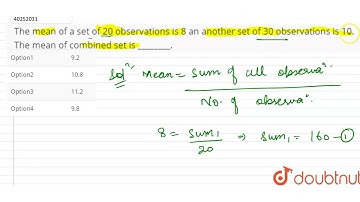 40252031
The mean of a set of 20 observations is 8 an another set of 30 observations is 10.
The mean of combined set is ________.
Option1 9.2
Option2 10.8
Option3 11.2
Option4 9.8
Solⁿ. Mean = Sum of all observaⁿ.
No. of observaⁿ.
8 = Sum₁ / 20 ⇒ Sum₁ = 160 – ①
doubtnut